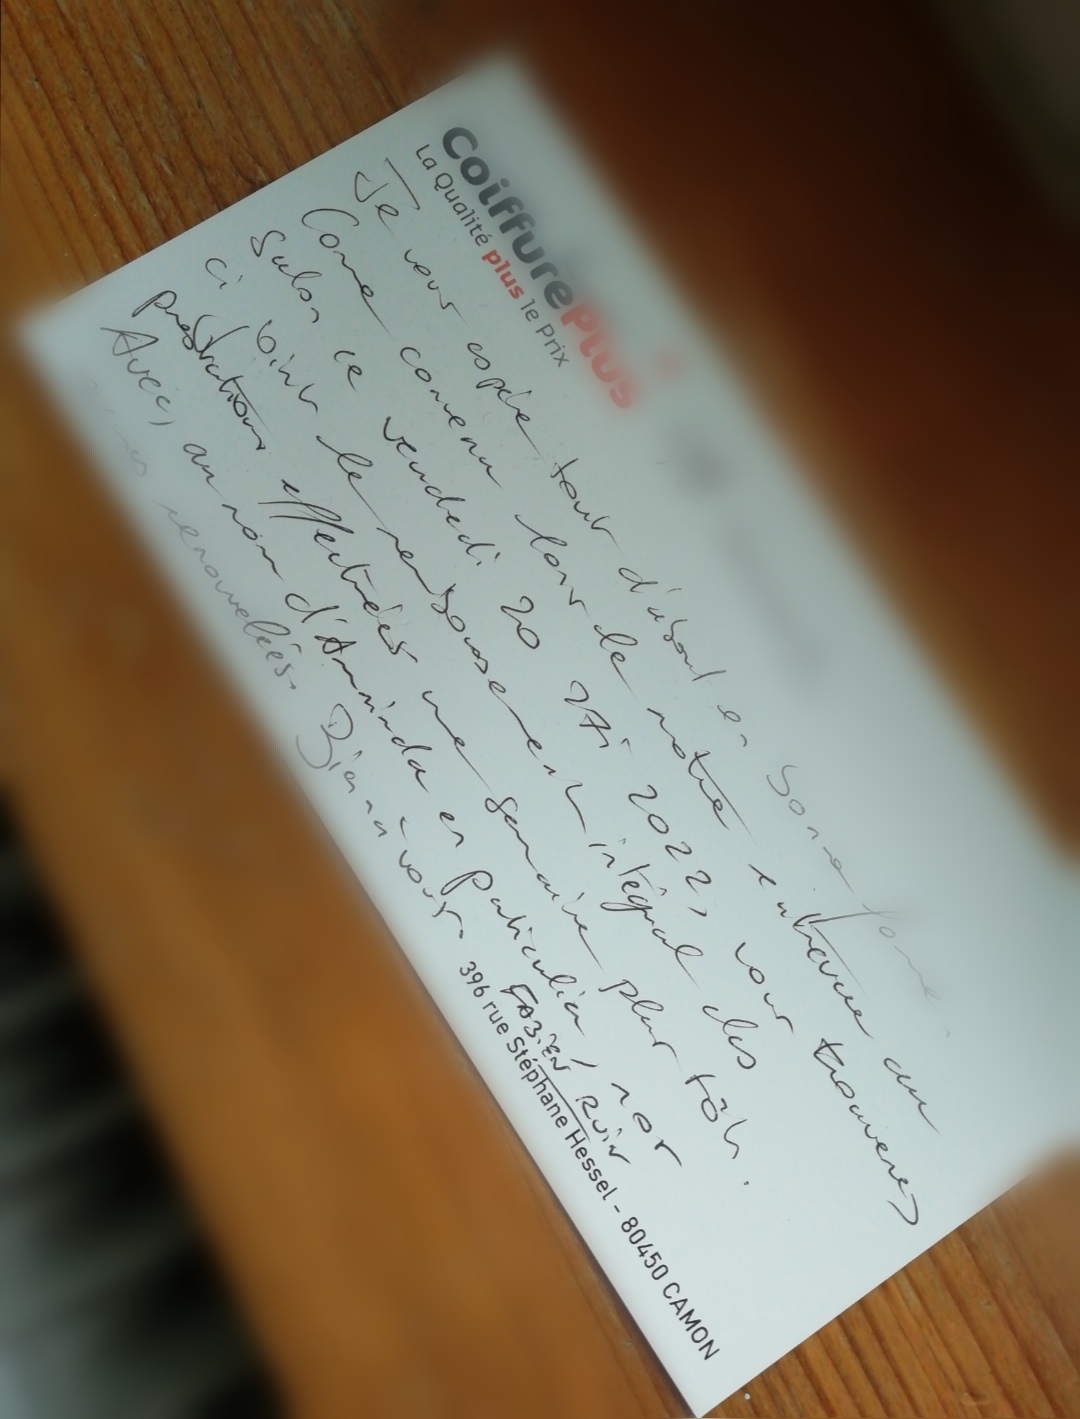 CoiffurePlus
La Qualité plus le Prix
Je vous espère tout d'abord en bonne forme.
Comme convenu lors de notre entrevue au
salon ce vendredi 20 mai 2022, vous trouverez
ci joint le remboursement intégral des
prestations effectuées une semaine plus tôt.
Avec, au nom d'Arminda en particulier, nos
renouvelées. Bien à vous.
FABIEN
396 rue Stéphane Hessel - 80450 CAMON